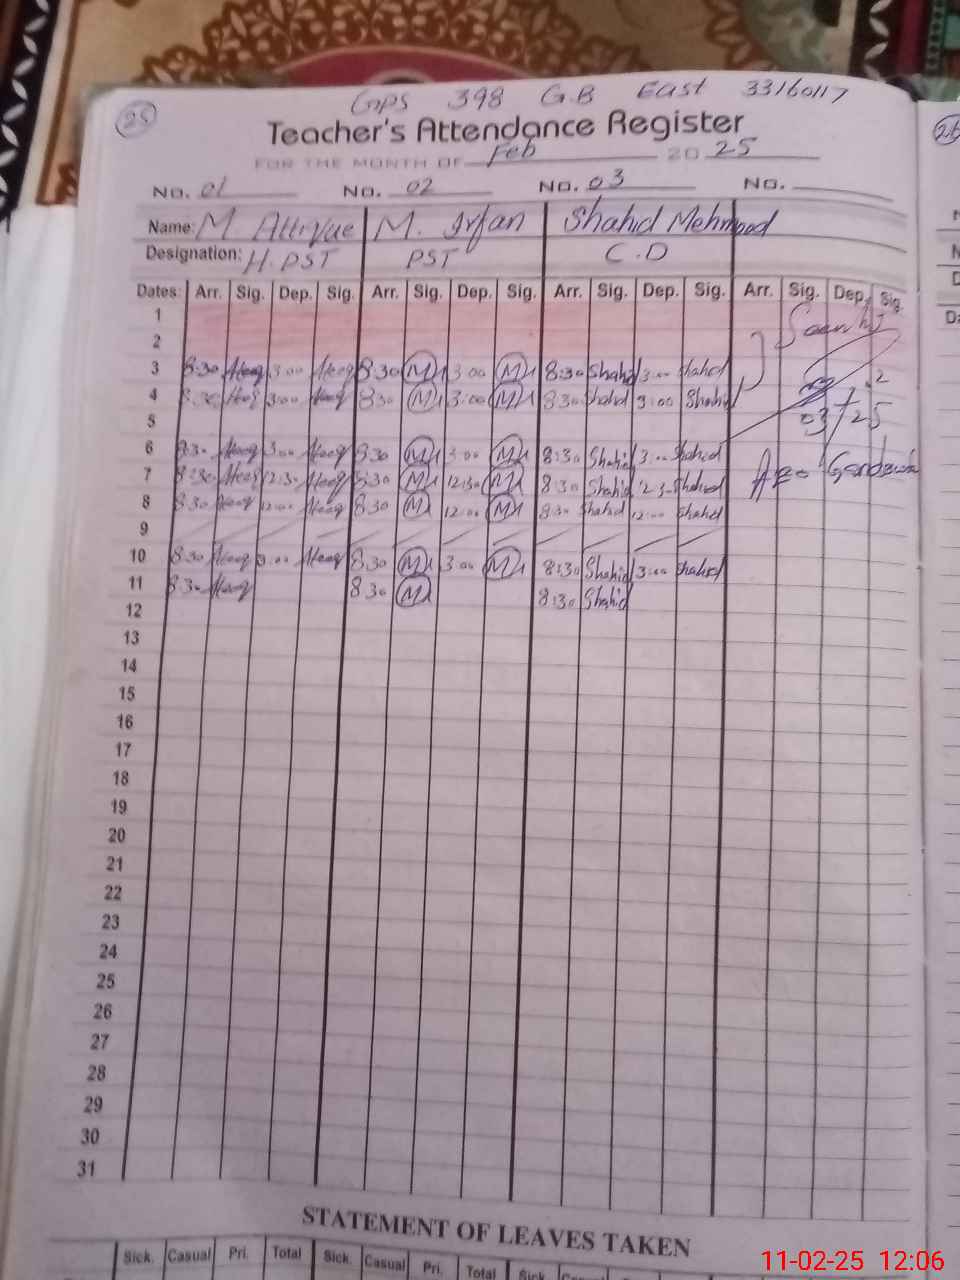 25
GPS 398 G.B East 33160117
Teacher's Attendance Register
FOR THE MONTH OF Feb 20 25
No. 01 No. 02 No. 03 No.
Name: M Attique M. Irfan Shahid Mehmood
Designation: H.PST PST C.D
Dates: Arr. Sig. Dep. Sig. Arr. Sig. Dep. Sig. Arr. Sig. Dep. Sig. Arr. Sig. Dep. Sig.
1
2
3 8:30 Ateeq 3:00 Ateeq 8:30 M 3:00 M 8:30 Shahid 3:00 Shahid
4 8:30 Ateeq 3:00 Ateeq 8:30 M 3:00 M 8:30 Shahid 3:00 Shahid
5 03 25
6 8:30 Ateeq 3:00 Ateeq 8:30 M 3:00 M 8:30 Shahid 3:00 Shahid
7 8:30 Ateeq 12:30 Ateeq 8:30 M 12:30 M 8:30 Shahid 12:30 Shahid
8 8:30 Ateeq 12:00 Ateeq 8:30 M 12:00 M 8:30 Shahid 12:00 Shahid
9
10 8:30 Ateeq 3:00 Ateeq 8:30 M 3:00 M 8:30 Shahid 3:00 Shahid
11 8:30 Ateeq 8:30 M 8:30 Shahid
12
13
14
15
16
17
18
19
20
21
22
23
24
25
26
27
28
29
30
31
STATEMENT OF LEAVES TAKEN
Sick. Casual Pri. Total Sick. Casual Pri. Total Sick.
11-02-25 12:06